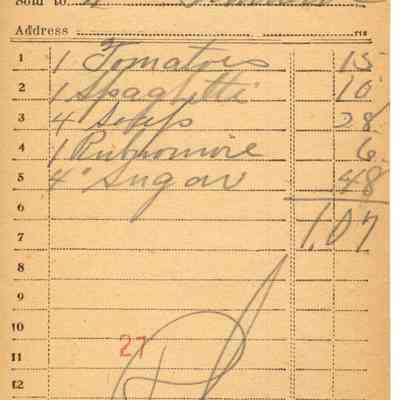 Sold to
Address
1 1 Tomatoes 15
2 1 Spaghetti 10
3 4 28
4 1 6
5 4 Sugar 48
6
7 1.07
8
9
10
27
11
12